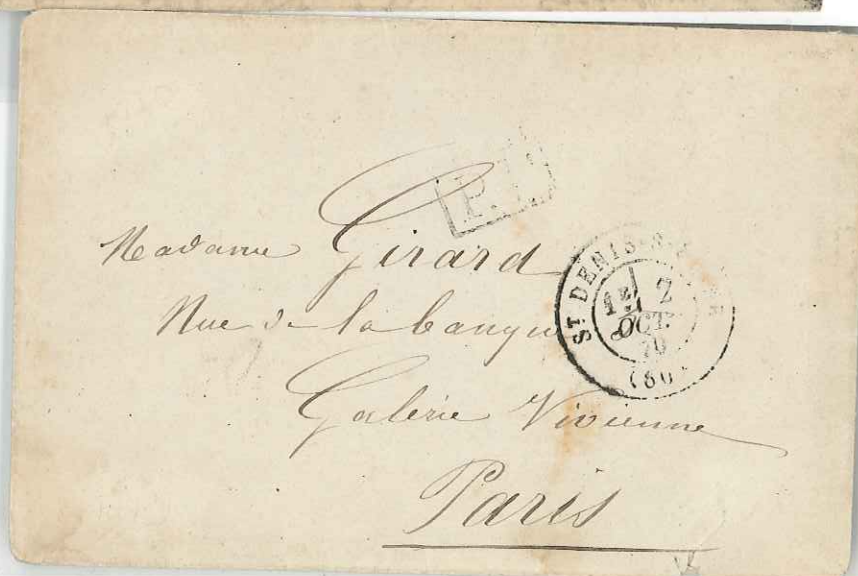 P.P.
Madame Girard
Rue de la banque
Galerie Vivienne
Paris
ST DENIS-S-
1E 2
OCT.
70